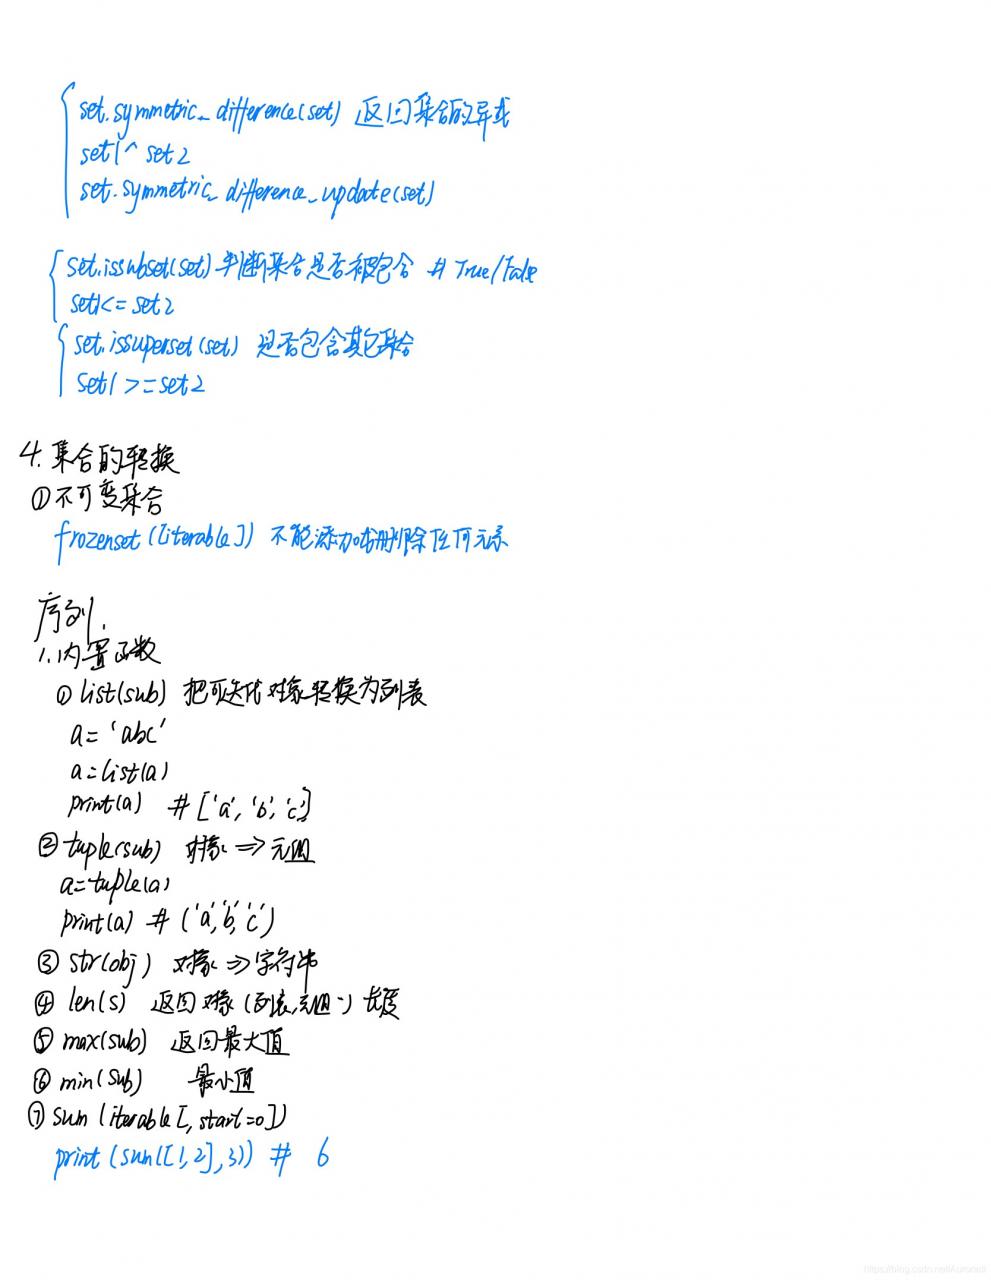 set.symmetric_difference(set) 返回集合的异或
set1^set2
set.symmetric_difference_update(set)
set.issubset(set) 判断集合是否被包含 # True/False
set1<=set2
set.issuperset(set) 是否包含其它集合
set1>=set2
4.集合的转换
①不可变集合
frozenset([iterable]) 不能添加或删除任何元素
序列.
1.内置函数
① list(sub) 把可迭代对象转换为列表
a='abc'
a=list(a)
print(a) # ['a','b','c']
② tuple(sub) 对象=>元组
a=tuple(a)
print(a) # ('a','b','c')
③ str(obj) 对象=>字符串
④ len(s) 返回对象(列表,元组…)长度
⑤ max(sub) 返回最大值
⑥ min(sub) 最小值
⑦ sum(iterable[,start=0])
print(sum([1,2],3)) # 6